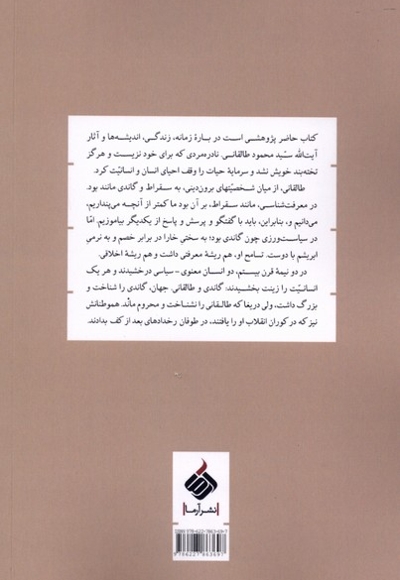 کتاب حاضر پژوهشی است در بارهٔ زمانه، زندگی، اندیشه‌ها و آثار
آیت‌الله سیّد محمود طالقانی. نادره‌مردی که برای خود نزیست و هرگز
تخته‌بند خویش نشد و سرمایهٔ حیات را وقف احیای انسان و انسانیّت کرد.
طالقانی، از میان شخصیّتهای برون‌دینی، به سقراط و گاندی مانند بود.
در معرفت‌شناسی، مانند سقراط، بر آن بود ما کمتر از آنچه می‌پنداریم،
می‌دانیم و، بنابراین، باید با گفتگو و پرسش و پاسخ از یکدیگر بیاموزیم. امّا
در سیاست‌ورزی چون گاندی بود؛ به سختی خارا در برابر خصم و به نرمی
ابریشم با دوست. تسامح او، هم ریشهٔ معرفتی داشت و هم ریشهٔ اخلاقی.
در دو نیمهٔ قرن بیستم، دو انسان معنوی - سیاسی درخشیدند و هر یک
انسانیّت را زینت بخشیدند: گاندی و طالقانی. جهان، گاندی را شناخت و
بزرگ داشت، ولی دریغا که طالقانی را نشناخت و محروم ماند. هموطنانش
نیز که در کوران انقلاب او را یافتند، در طوفان رخدادهای بعد از کف بدادند.
نشر آرما